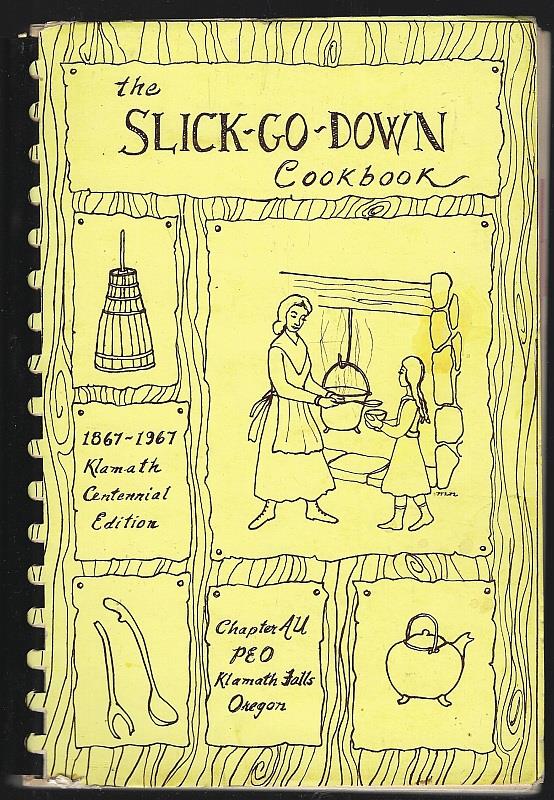 the
SLICK-GO-DOWN
Cookbook
1867-1967
Klamath
Centennial
Edition
Chapter AU
PEO
Klamath Falls
Oregon